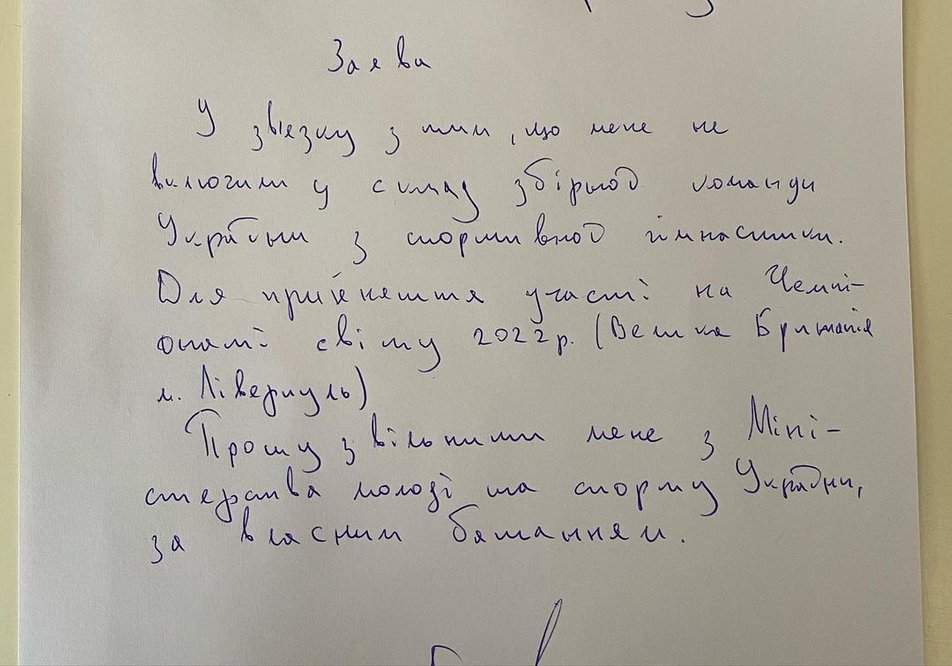 Заява
У зв'язку з тим, що мене не
включили у склад збірної команди
України з спортивної гімнастики.
Для прийнняття участі на Чемпі-
онаті світу 2022р. (Велика Британія
м. Ліверпуль)
Прошу звільнити мене з Міні-
стерства молоді та спорту України,
за власним бажанням.